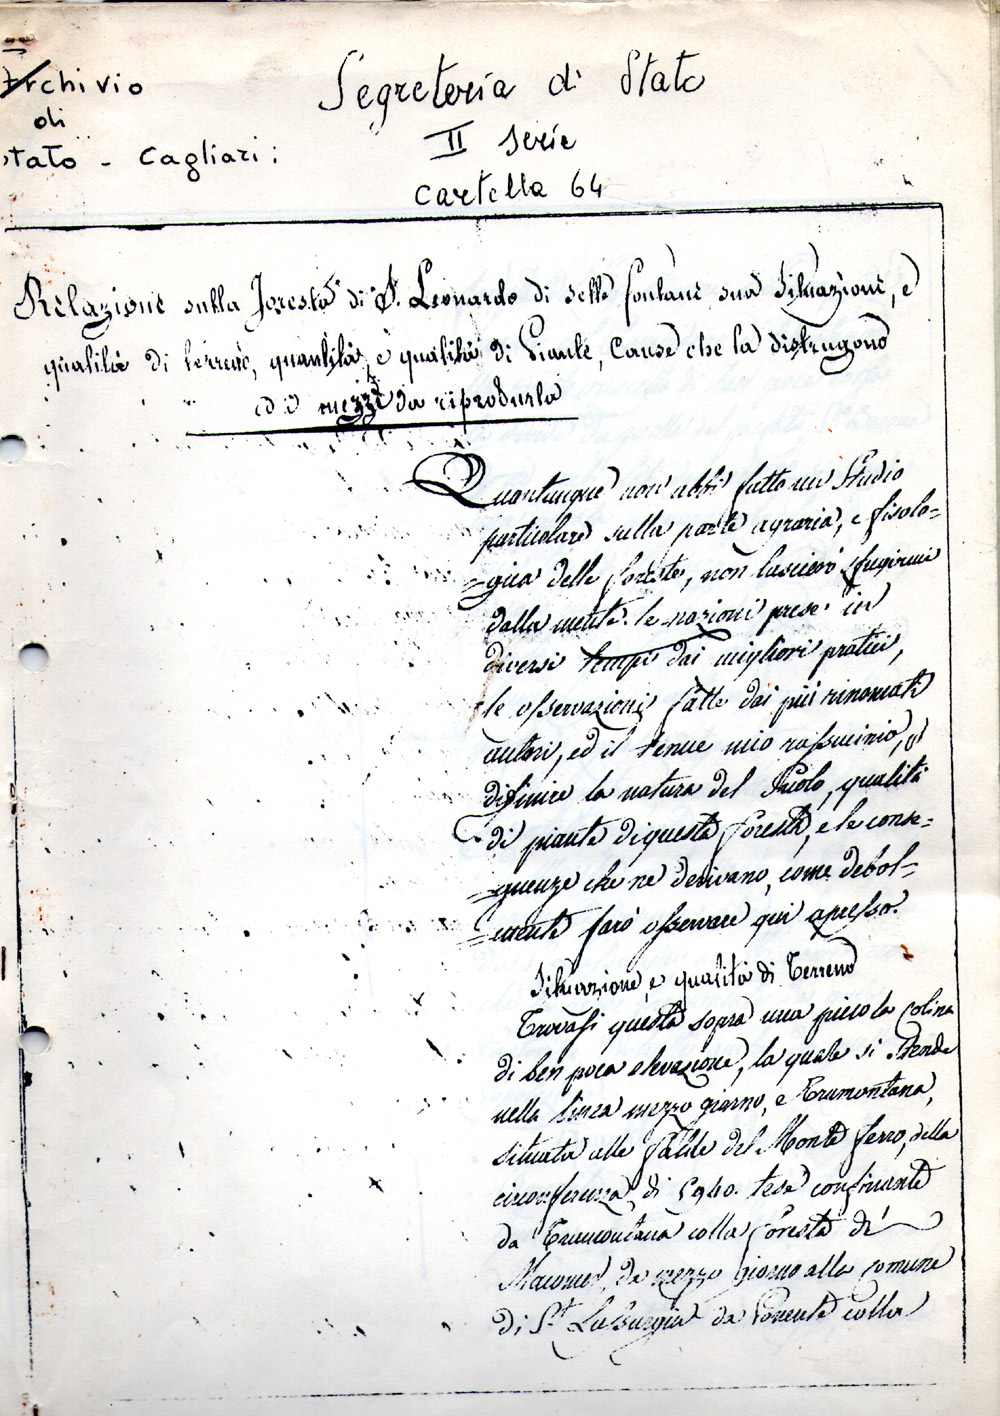 Archivio
di
Stato - Cagliari:
Segreteria di Stato
II Serie
Cartella 64
Relazione sulla Foresta di S. Leonardo di sette fontane sua Situazione, e
qualità di terreno, quantità, e qualità di Piante, Cause che la distrugono
ed i mezzi da riprodurla
Quantunque non abbi fatto un Studio
particolare sulla parte agraria, e fisolo=
=gica delle foreste, non lascierò sfugirmi
dalla mente le nozioni prese in
diversi tempi dai migliori pratici,
le osservazioni fatte dai più rinomati
autori, ed il tenue mio rassiucinio,
difinire la natura del Suolo, qualità
di piante di questa foresta, e le conse=
=guenze che ne derivano, come debol=
=mente farò osservare qui apresso.
Situazione, e qualità di Terreno
Trovasi questa sopra una piccola colina
di ben poca elevazione, la quale si stende
nella linea mezzo giorno, e Tramontana,
situata alle falde del Monte ferro, della
circonferenza di 5940. tese confinante
da Tramontana colla foresta di
Macomer, da mezzo giorno alla comune
di S.t Lusurgiu da Ponente colla